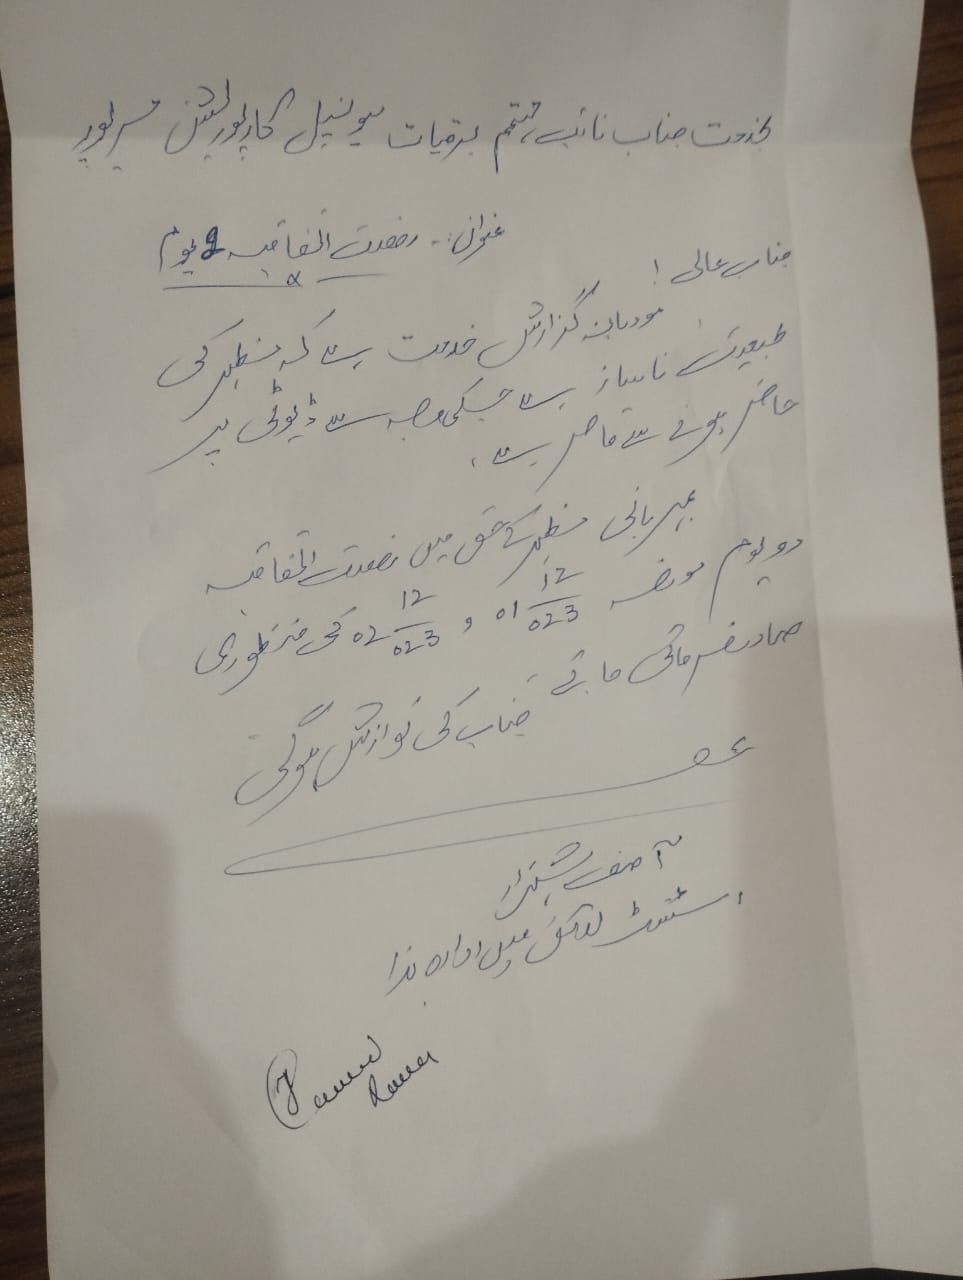 بخدمت جناب نائب مہتمم برقیات میونسپل کارپوریشن میرپور
عنوان:۔ رخصت اتفاقیہ 2 یوم
جناب عالی!
مودبانہ گزارش خدمت ہے کہ مظہر کی
طبعیت ناساز ہے جسکی وجہ سے ڈیوٹی پر
حاضر ہونے سے قاصر ہے۔
مہربانی مظہر کے حق میں رخصت اتفاقیہ
دو یوم مورخہ 01 12/023 و 02 12/023 کی منظوری
صادر فرمائی جائے جناب کی نوازش ہوگی
آصف
اسسٹنٹ لائن مین ادارہ ہذا